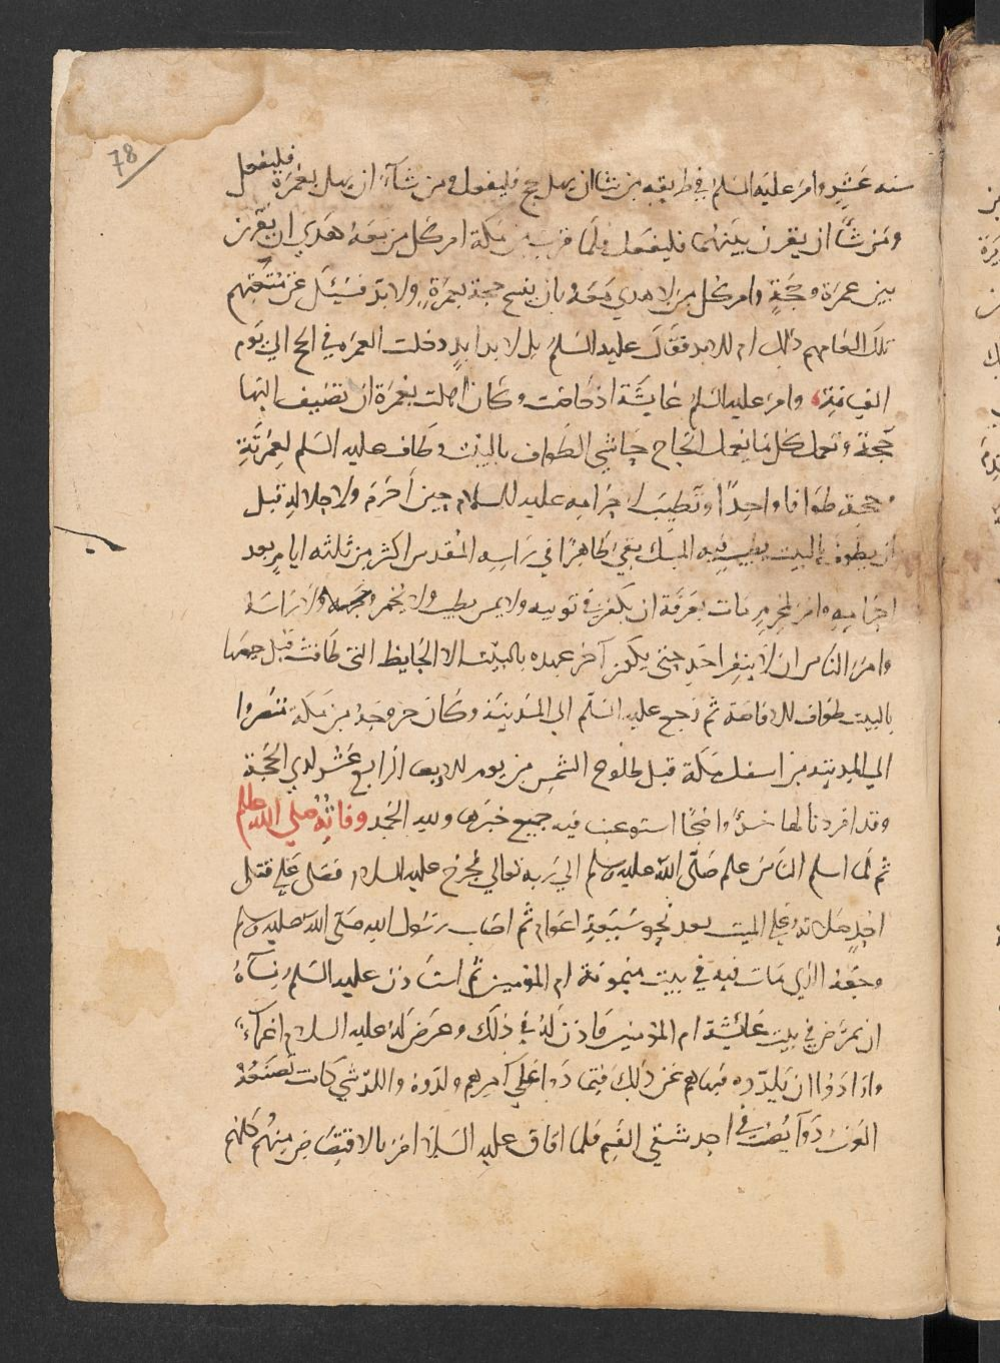 78
سنه عشر وامر عليه السلم في طريقه من شا ان يهل بحج فليفعل ومن شآء ان يهل بعمرة فليفعل
ومن شآ ان يقرن بينهما فليفعل فلما قرب من مكة امر كل من معه هدي ان يقرن
بين عمرة وحجة وامر كل من لا هدي معه بان يفسخ حجه بعمرة ولا بد فسئل عن متعتهم
تلك العامهم ذلك ام للابد فقال عليه السلم بل لابد ابد دخلت العمره في الحج الى يوم
القيامة وامر عليه السلم عايشة اذ حاضت وكان اهلت بعمرة ان تضيف اليها
حجة وتعمل كل ما يعمل الحاج حاشي الطواف بالبيت وطاف عليه السلم لعمرته
وحجته طوافا واحدا وتطيب لاحرامه عليه السلام حين احرم ولاحلاله قبل
ان يطوف بالبيت بطيب فيه المسك بقي ظاهرا في راسه المقدس اكثر من ثلثه ايام بعد
احرامه وامر لمحرم مات بعرفة ان يكفن في ثوبيه ولا يمس بطيب ولا يخمر وجهه ولا راسه
وامر الناس ان لا ينفر احد حتى يكون آخر عهده بالبيت الا الحايض التي طافت قبل حيضها
بالبيت طواف الافاضة ثم رجع عليه السلم الى المدينة وكان خروجه من مكة
الى المدينة من اسفل مكة قبل طلوع الشمس من يوم الاربعا الرابع عشر لذي الحجة
وقد افردنا لها جزا واضحا استوعبت فيه جميع خبرها ولله الحمد وفاته صلى الله عليه وسلم
ثم لما اسلم الناس علم صلى الله عليه وسلم الى ربه تعالى فخرج عليه السلام فصلى على قتلى
احد صلاته على الميت بعد نحو سبعة اعوام ثم اصاب رسول الله صلى الله عليه وسلم
وجعه الذي مات فيه في بيت ميمونة ام المومنين ثم استاذن عليه السلم نسآه
ان يمرض في بيت عائشة ام المومنين فاذن له في ذلك وعرض له عليه السلام اغمآء
وارادوا ان يلدوه فنهاهم عن ذلك فتمادوا على امرهم ولدوه واللد شي كانت تصنعه
العرب دوآ يصب في احد شقي الفم فلما افاق عليه السلام امر بالاقتصاص منهم كلهم